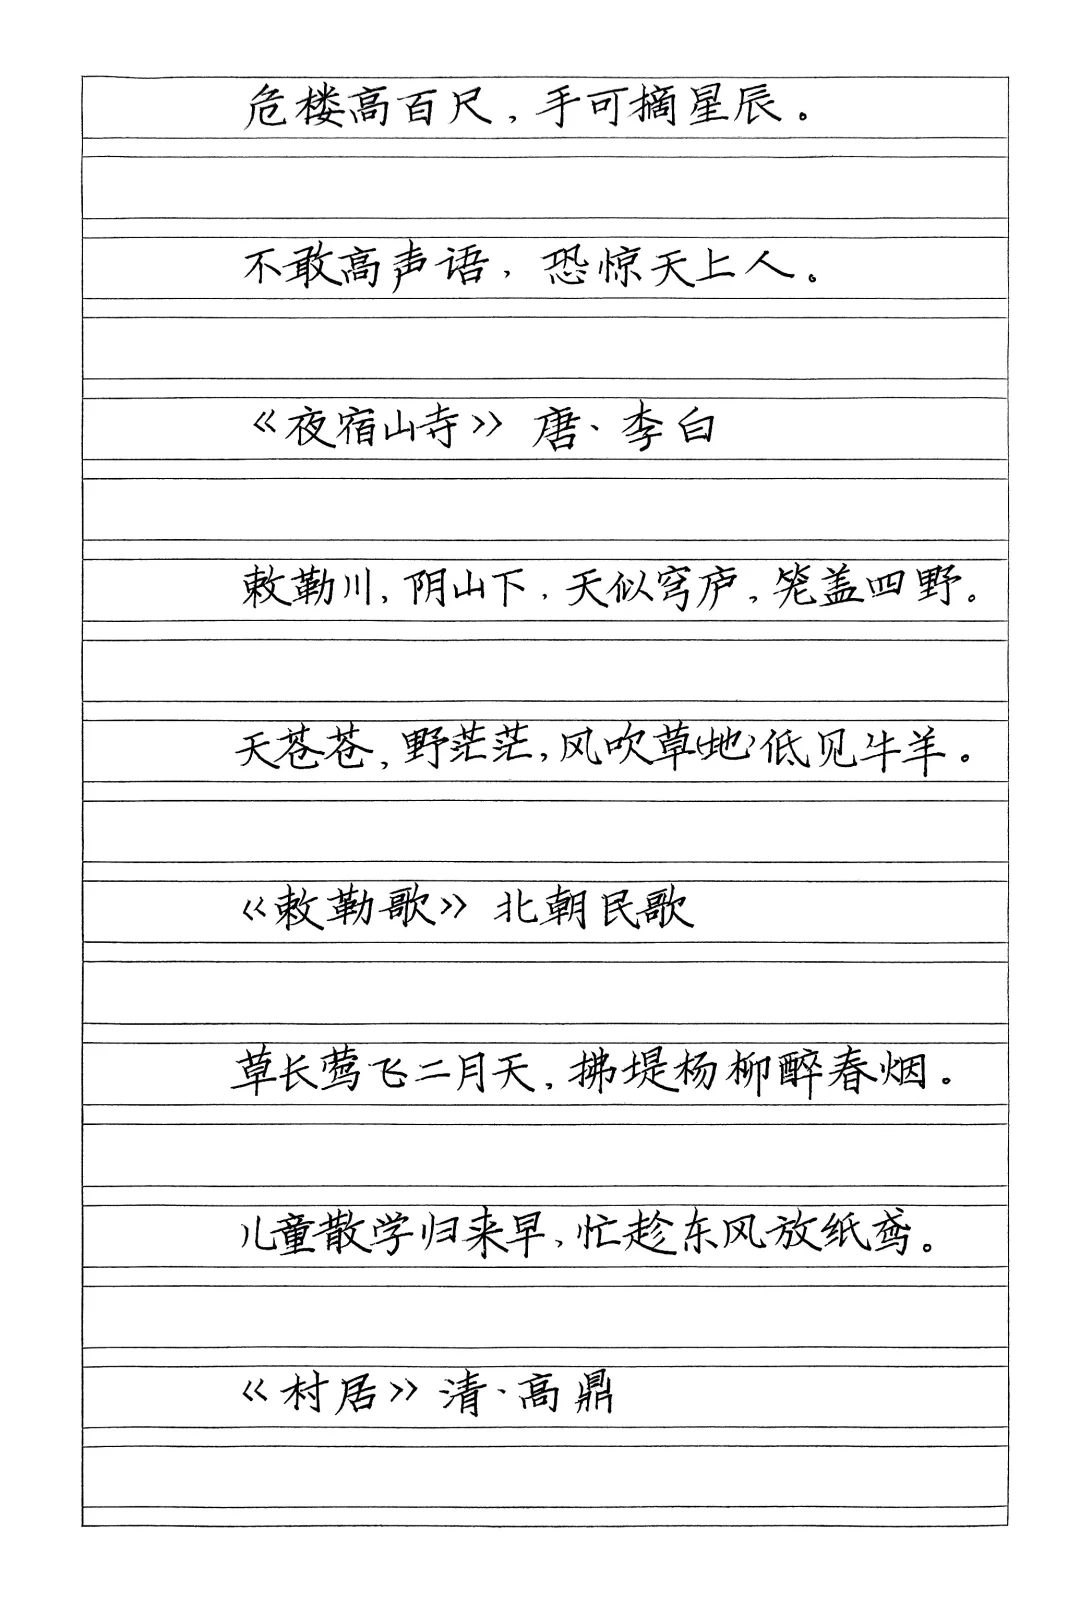 危楼高百尺，手可摘星辰。
不敢高声语，恐惊天上人。
《夜宿山寺》唐、李白
敕勒川，阴山下，天似穹庐，笼盖四野。
天苍苍，野茫茫，风吹草(地)低见牛羊。
《敕勒歌》北朝民歌
草长莺飞二月天，拂堤杨柳醉春烟。
儿童散学归来早，忙趁东风放纸鸢。
《村居》清·高鼎